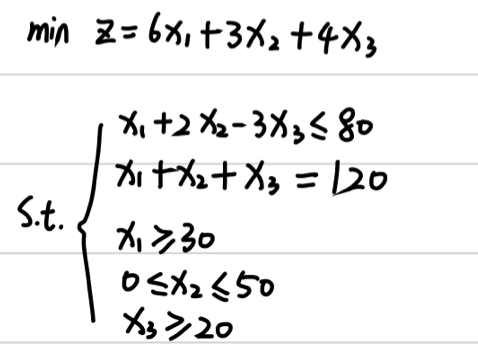 min z=6x₁+3x₂+4x₃
x₁+2x₂-3x₃≤80
x₁+x₂+x₃=120
s.t.
x₁≥30
0≤x₂≤50
x₃≥20